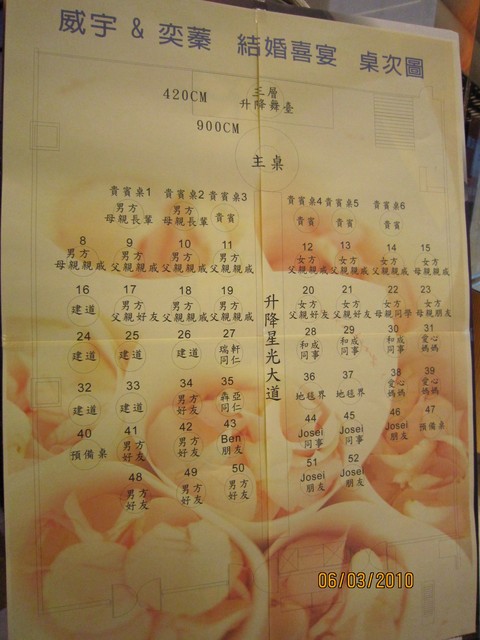 威宇 & 奕蓁 結婚喜宴 桌次圖
420CM
三層
升降舞臺
900CM
主桌
貴賓桌1 貴賓桌2 貴賓桌3 貴賓桌4 貴賓桌5 貴賓桌6
男方 男方 貴賓 貴賓 貴賓 貴賓
母親長輩 母親長輩
8 9 10 11 12 13 14 15
男方 男方 男方 男方 女方 女方 女方 女方
母親親戚 父親親戚 父親親戚 父親親戚 父親親戚 父親親戚 父親親戚 母親親戚
16 17 18 19 20 21 22 23
建道 男方 男方 男方 女方 女方 女方 女方
父親好友 父親親戚 父親親戚 父親好友 父親好友 母親同學 母親朋友
升降星光大道
24 25 26 27 28 29 30 31
建道 建道 建道 瑞軒 和成 和成 和成 愛心
同仁 同事 同事 同事 媽媽
32 33 34 35 36 37 38 39
建道 建道 男方 犇亞 地毯界 地毯界 愛心 愛心
好友 同仁 媽媽 媽媽
40 41 42 43 44 45 46 47
預備桌 男方 男方 Ben Josei Josei Josei 預備桌
好友 好友 朋友 同事 同事 朋友
48 49 50 51 52
男方 男方 男方 Josei Josei
好友 好友 好友 朋友 朋友
06/03/2010